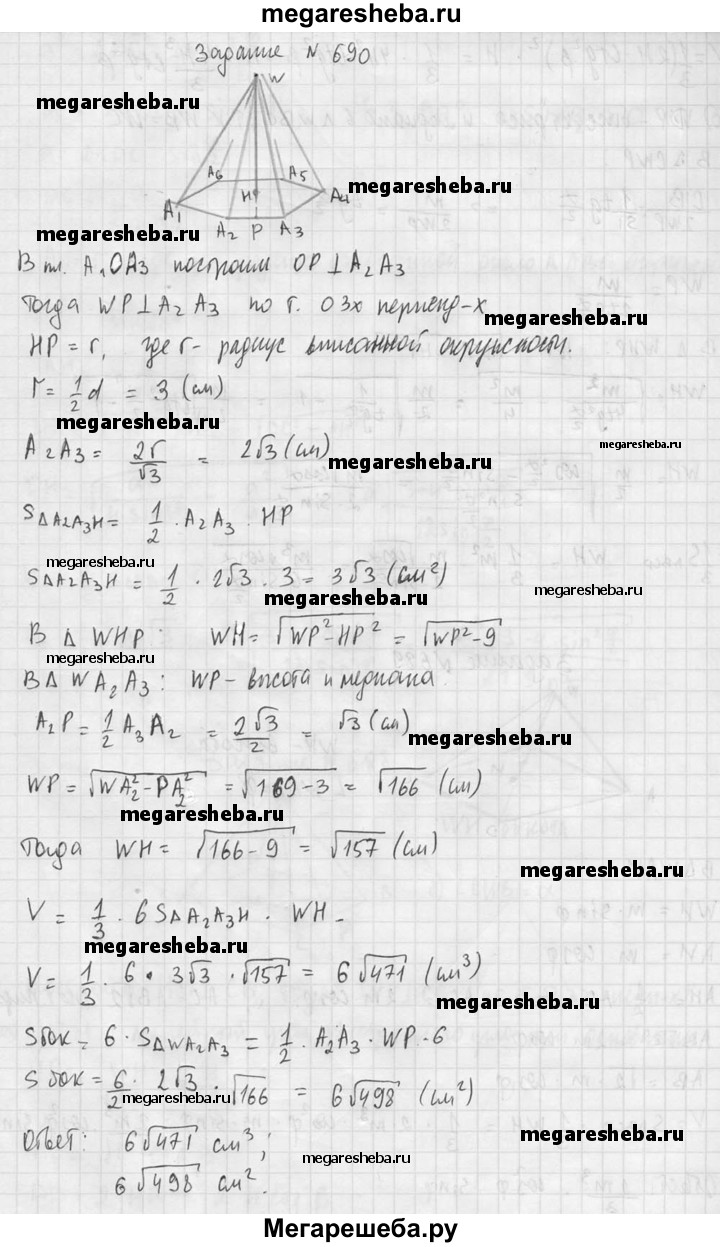 megaresheba.ru
Задание N 690
W
megaresheba.ru
A6 A5
megaresheba.ru
A1 H A4
megaresheba.ru
A2 P A3
В пл. A1OA3 построим OP⊥A2A3
Тогда WP⊥A2A3 по т. О 3х перпенд-х
megaresheba.ru
HP = r, где r- радиус вписанной окружности.
r = 1/2 d = 3 (см)
megaresheba.ru
megaresheba.ru
A2A3 = 2r/√3 = 2√3 (см)
megaresheba.ru
S∆A2A3H = 1/2 · A2A3 · HP
megaresheba.ru
S∆A2A3H = 1/2 · 2√3 · 3 = 3√3 (см²)
megaresheba.ru
megaresheba.ru
В ∆ WHP: WH = √WP²-HP² = √WP²-9
megaresheba.ru
В∆ WA2A3: WP - высота и медиана.
A2P = 1/2 A3A2 = 2√3/2 = √3 (см)
megaresheba.ru
WP = √WA2²-PA2² = √169-3 = √166 (см)
megaresheba.ru
Тогда WH = √166-9 = √157 (см)
megaresheba.ru
V = 1/3 · 6S∆A2A3H · WH =
megaresheba.ru
V = 1/3 · 6 · 3√3 · √157 = 6√471 (см³)
megaresheba.ru
Sбок = 6 · S∆WA2A3 = 1/2 · A2A3 · WP · 6
Sбок = 6/2 · 2√3 · √166 = 6√498 (см²)
megaresheba.ru
megaresheba.ru
Ответ: 6√471 см³;
megaresheba.ru
megaresheba.ru
6√498 см².
Мегарешеба.ру